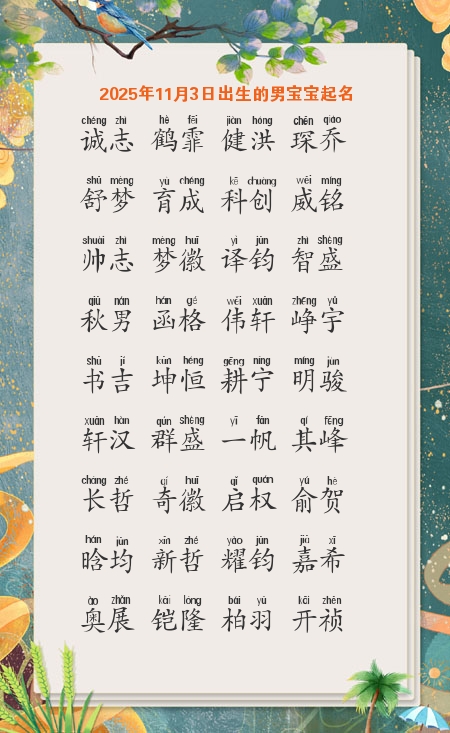 2025年11月3日出生的男宝宝起名
chéng zhì hè fēi jiàn hóng chēn qiáo
诚志 鹤霏 健洪 琛乔
shū mèng yù chéng kē chuàng wēi míng
舒梦 育成 科创 威铭
shuài zhì mèng huī yì jūn zhì shèng
帅志 梦徽 译钧 智盛
qiū nán hán gé wěi xuān zhēng yǔ
秋男 函格 伟轩 峥宇
shū jí kūn héng gēng níng míng jùn
书吉 坤恒 耕宁 明骏
xuān hàn qún shèng yī fān qí fēng
轩汉 群盛 一帆 其峰
cháng zhé qí huī qǐ quán yú hè
长哲 奇徽 启权 俞贺
hán jūn xīn zhé yào jūn jiā xī
晗均 新哲 耀钧 嘉希
ào zhǎn kǎi lóng bǎi yǔ kāi zhēn
奥展 铠隆 柏羽 开祯